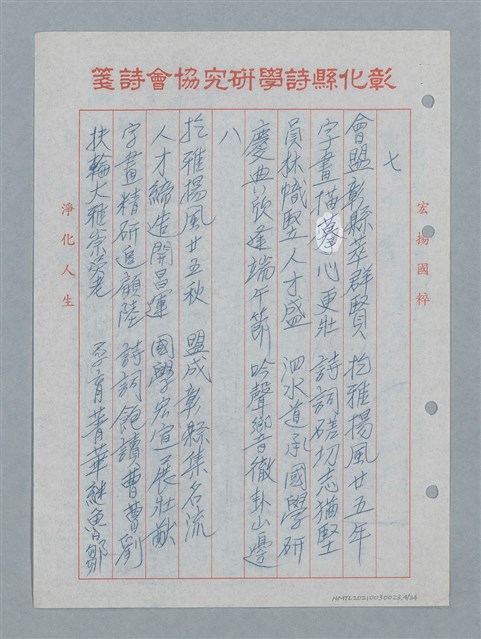 彰化縣詩學研究協會詩箋
宏揚國粹
七
會盟彰縣萃群賢 扢雅揚風廿五年
字畫描摹心更壯 詩詞磋切志猶堅
員林幟豎人才盛 泗水道承國學研
慶典欣逢端午節 吟聲響徹卦山邊
八
扢雅揚風廿五秋 盟成彰縣集名流
人才締造開昌運 國學宏宣展壯猷
字畫精研追顧陸 詩詞飽讀曹劉
扶輪大雅崇勞老 孕育菁華継魯鄒
淨化人生
NMTL20210030023,4/24